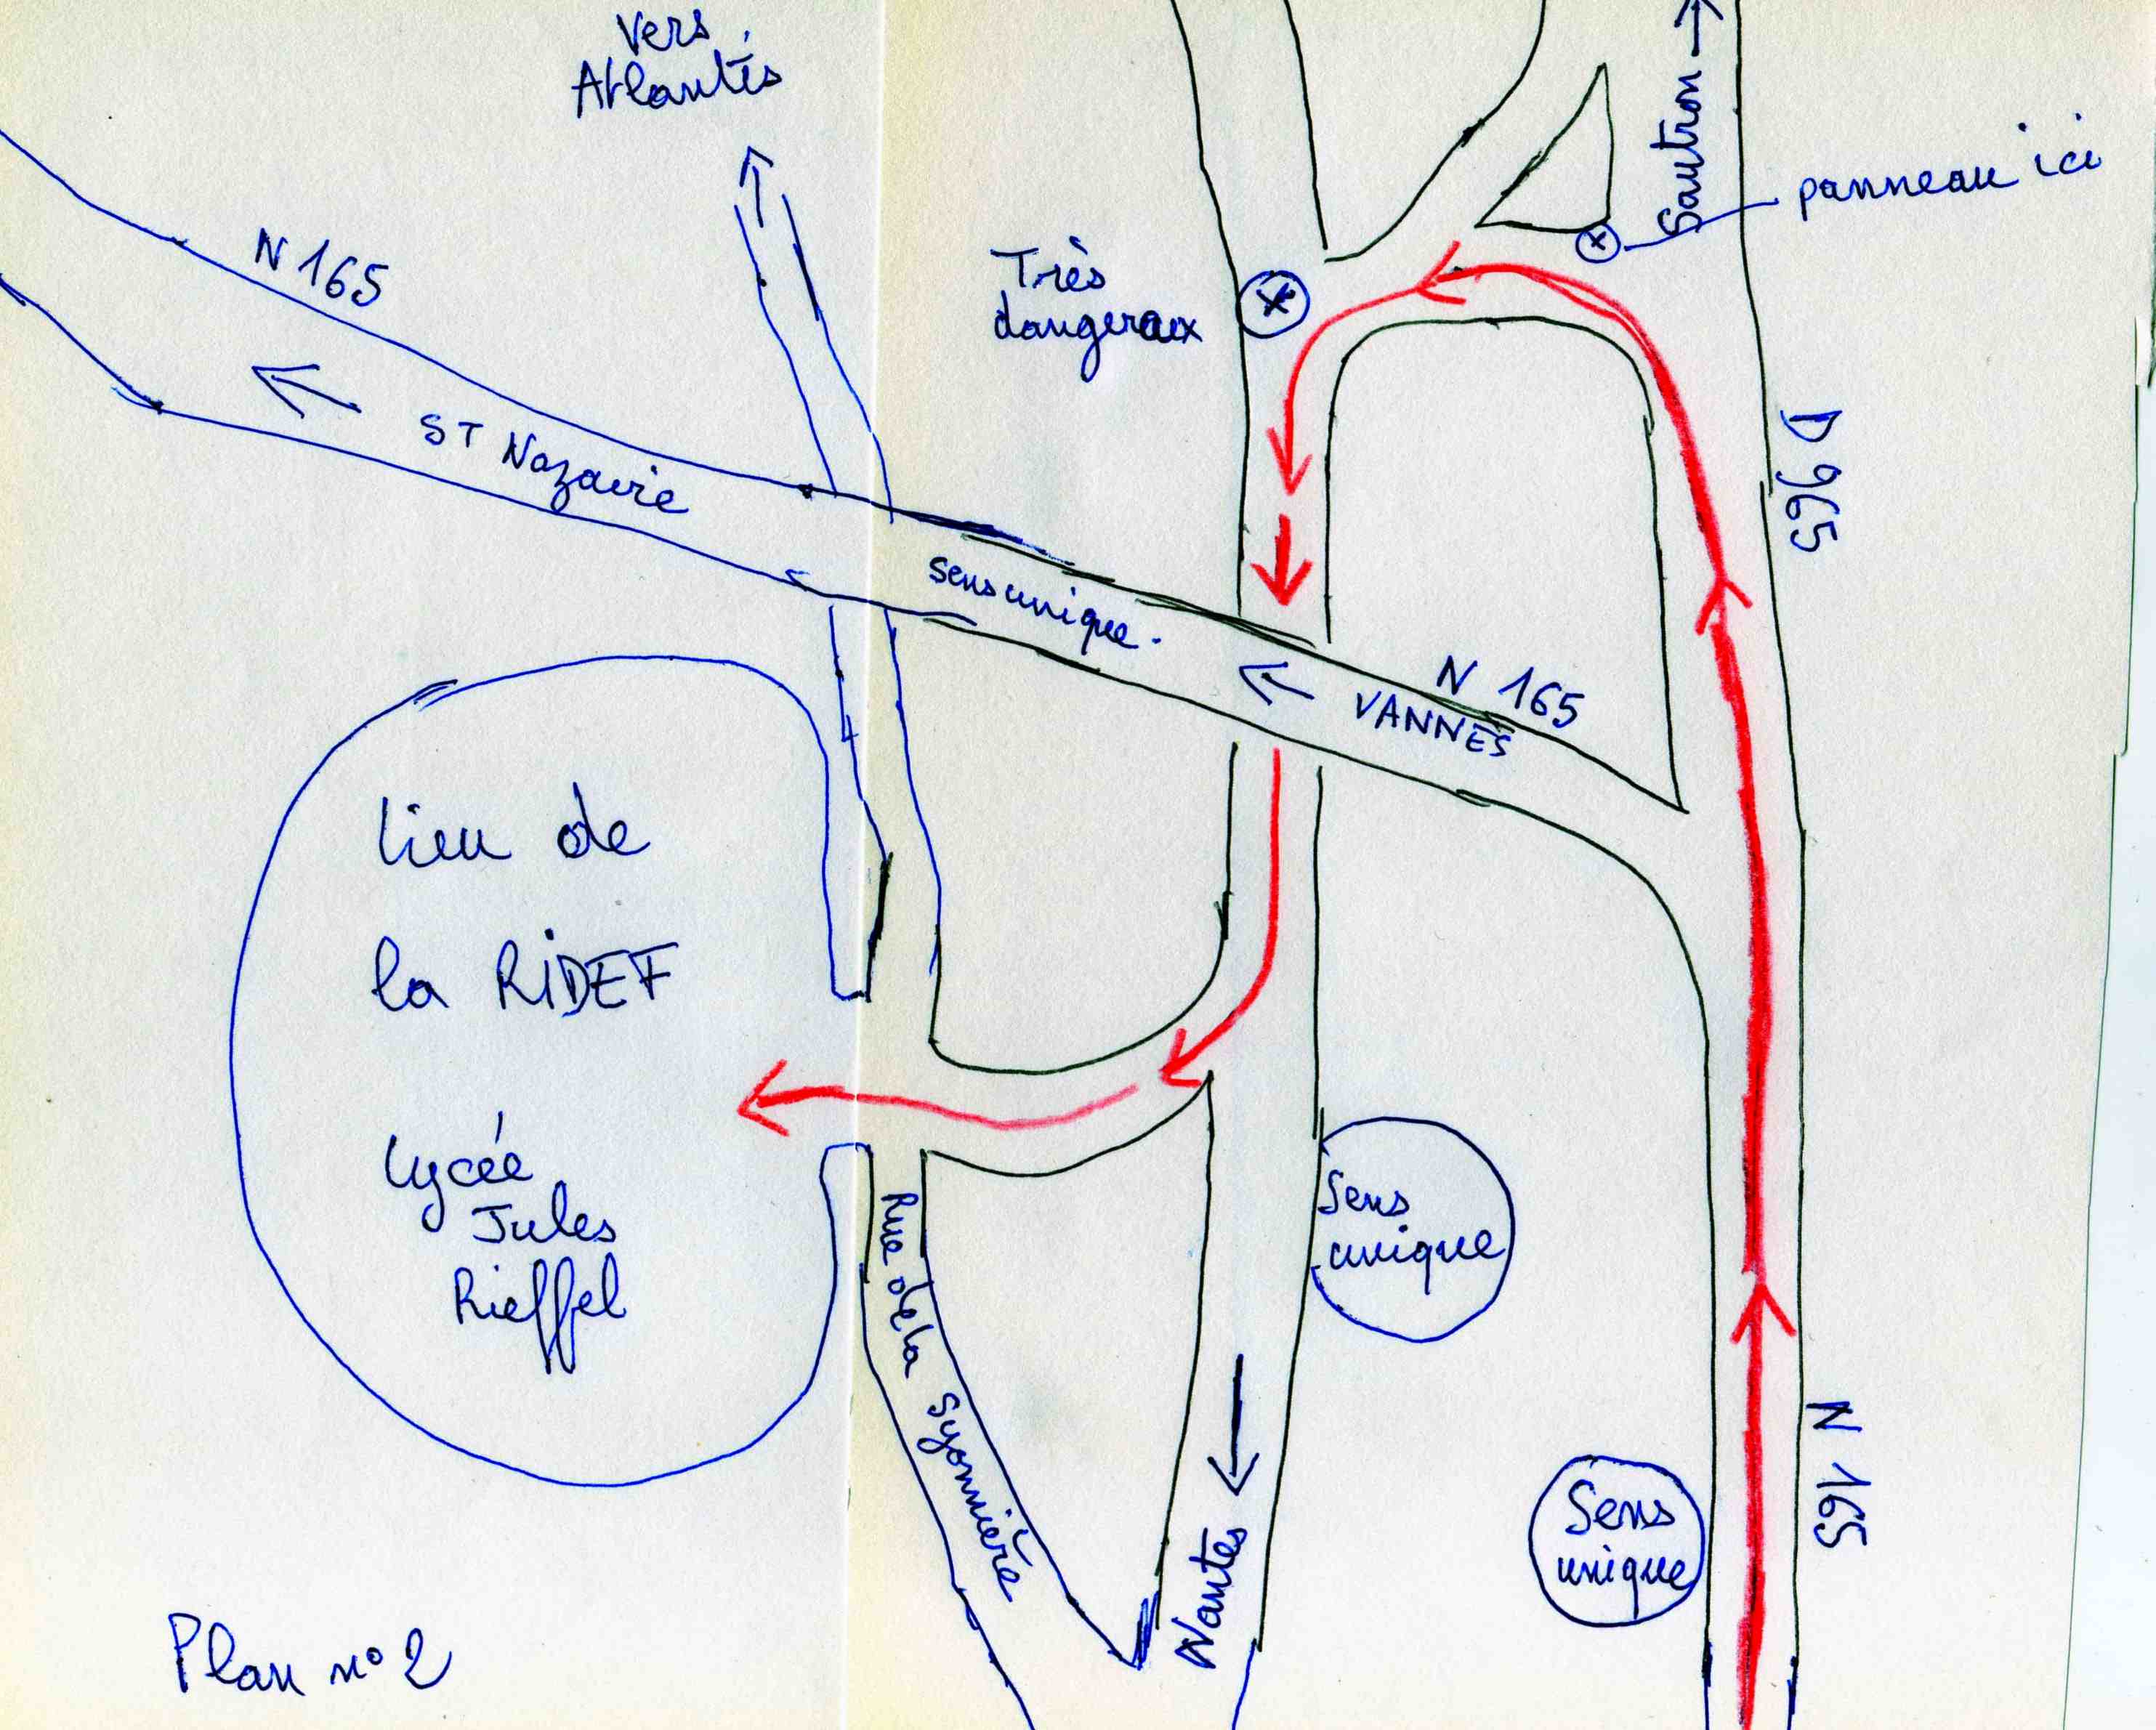 Vers
Atlantis
Sautron
panneau ici
N 165
Très
dangereux
D 965
ST Nazaire
sens unique.
N 165
VANNES
lieu de
la RIDEF
Lycée
Jules
Rieffel
Sens
unique
Rue de la Syonnière
Nantes
Sens
unique
N 165
Plan n° 2